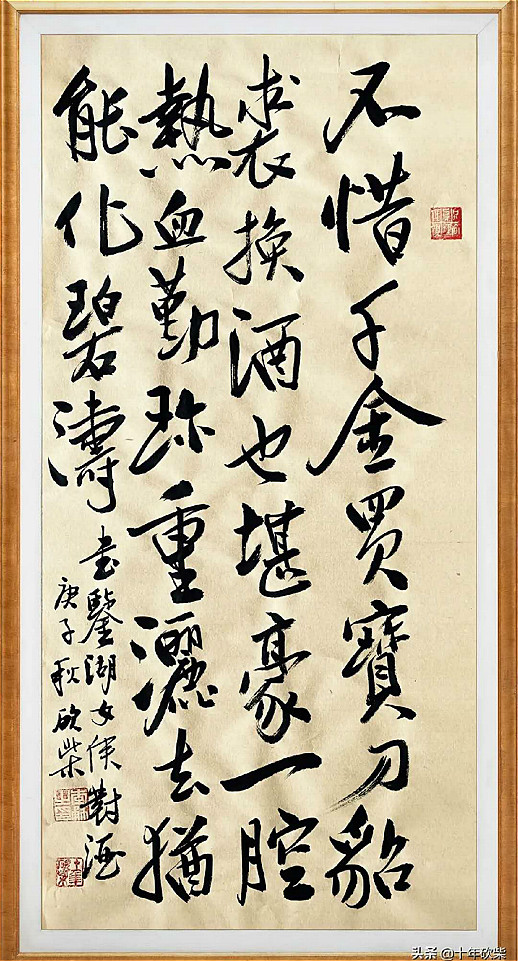 不惜千金買寶刀貂
裘換酒也堪豪一腔
熱血勤珍重灑去猶
能化碧濤
書鑒湖女俠對酒
庚子秋砍柴
头条 @十年砍柴